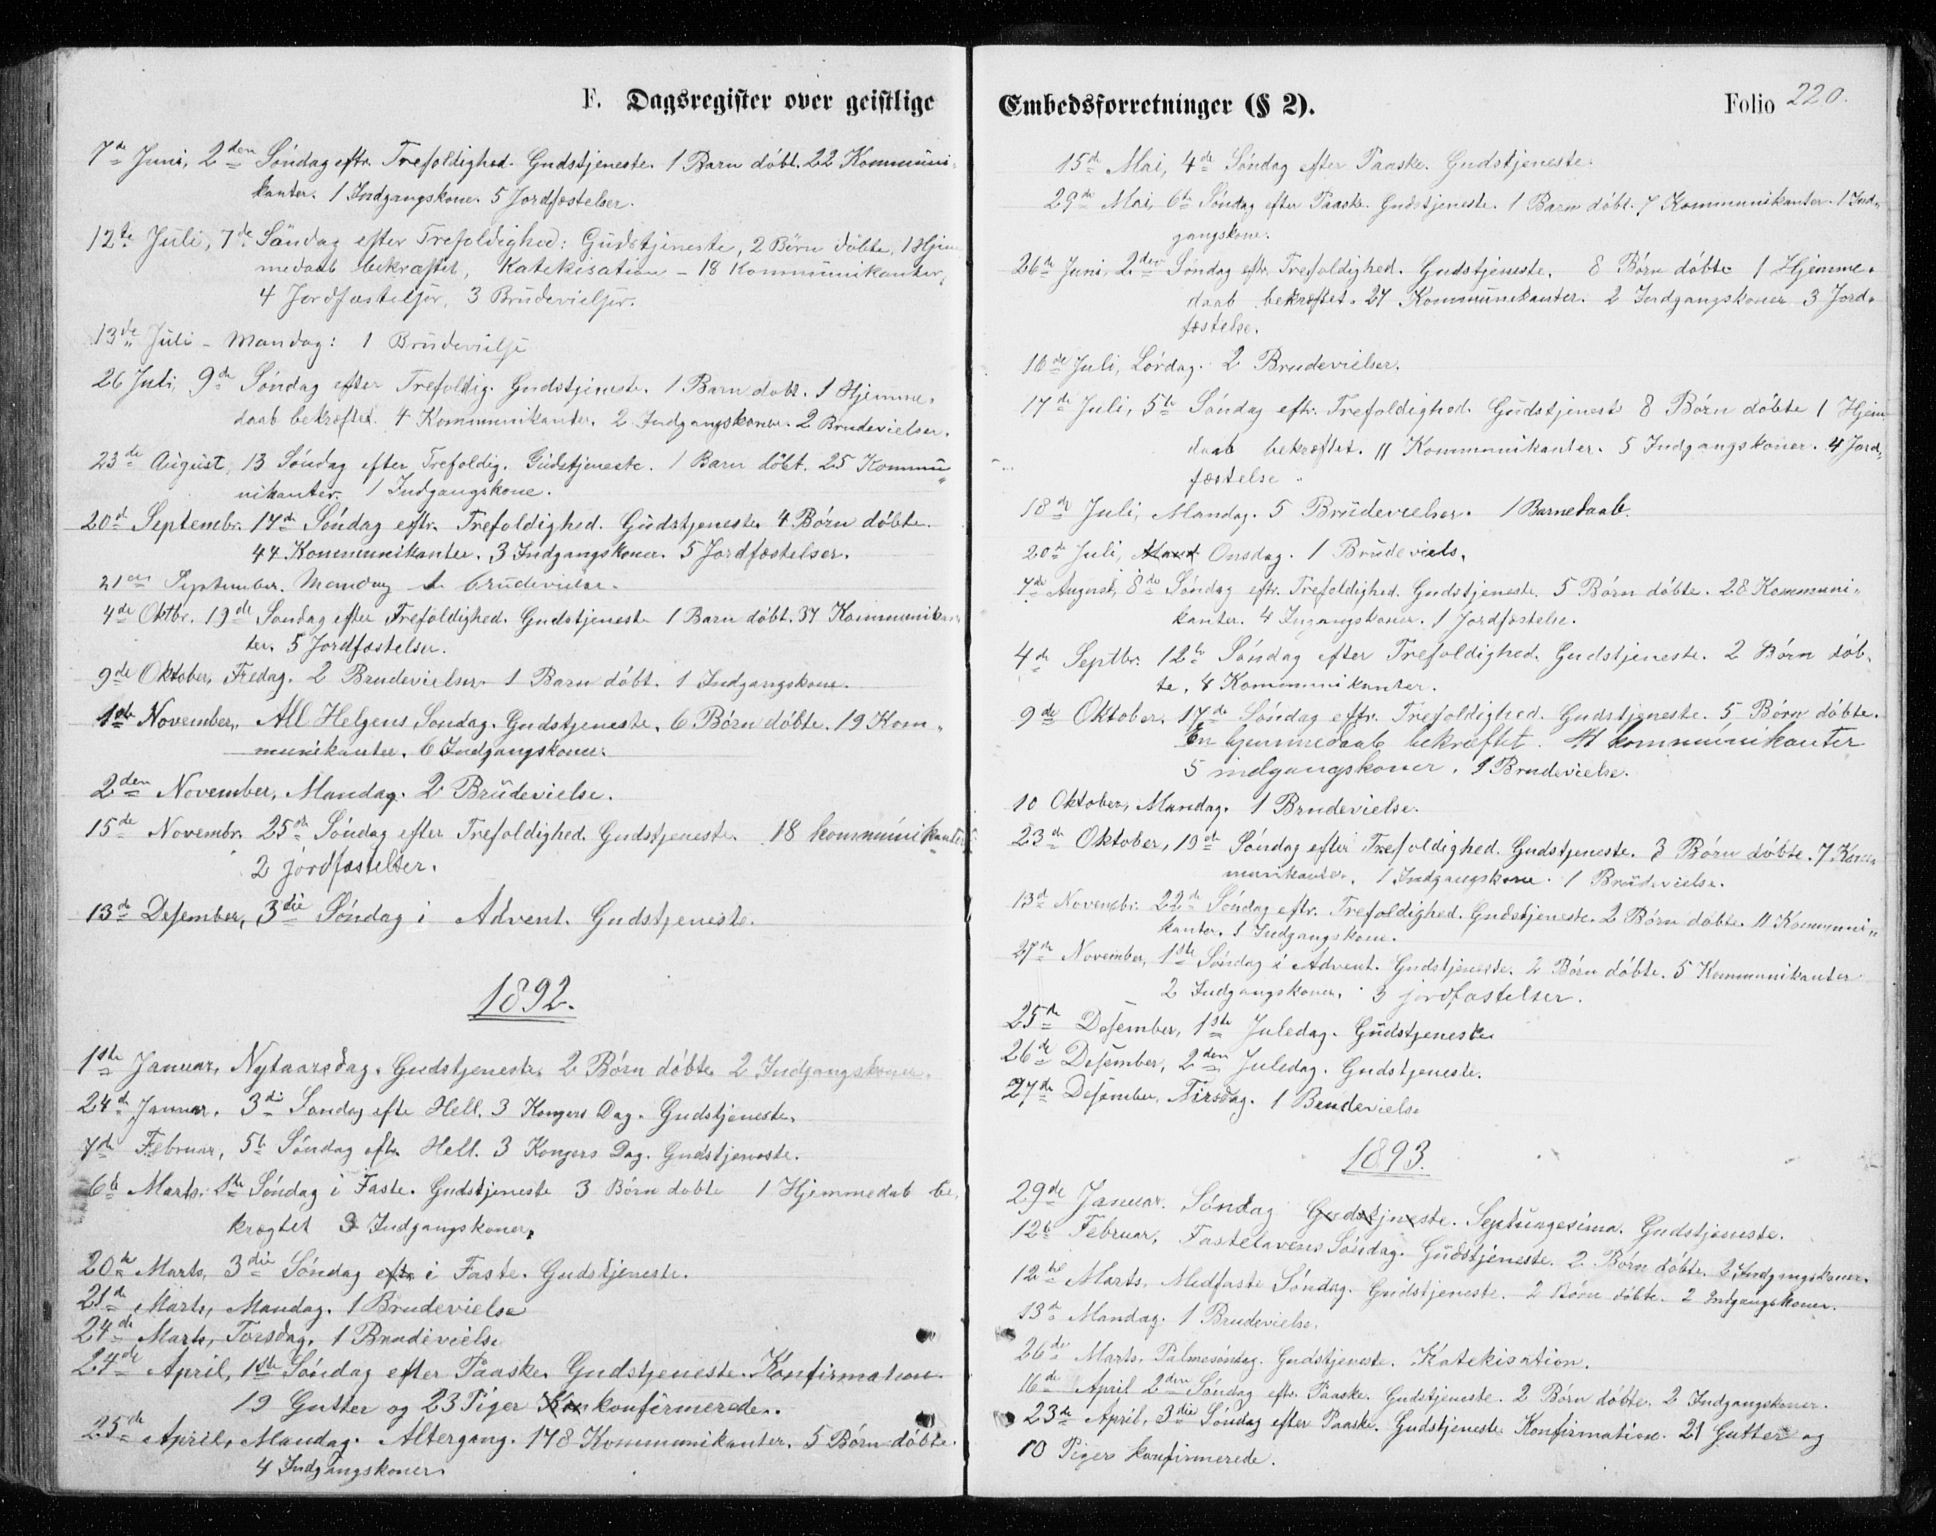 F. Dagsregister over geistlige
7de Juni, 2den Søndag eftr. Trefoldighed. Gudstjeneste. 1 Barn døbt. 22 Kommuni-
kanter. 1 Indgangskone. 5 Jordfæstelser.
12te Juli, 7de Søndag efter Trefoldighed: Gudstjeneste, 2 Börn döbte, 1 Hjem
medaab bekræftet, Katekisation - 18 Kommunikanter,
4 Jordfæstelser, 3 Brudevielser.
13de Juli - Mandag: 1 Brudevielse
26 Juli, 9de Søndag efter Trefoldig. Gudstjeneste. 1 Barn døbt. 1 Hjemme-
daab bekræftet. 4 Kommunikanter. 2 Indgangskoner. 2 Brudevielser.
23de August, 13 Søndag efter Trefoldig. Gudstjeneste. 1 Barn døbt. 25 Kommu-
nikanter. 1 Indgangskone.
20de Septembr. 17de Søndag eftr. Trefoldighed. Gudstjeneste 4 Børn døbte.
44 Kommunikanter. 3 Indgangskoner. 5 Jordfæstelser.
21de September. Mandag 1 brudevielse.
4de Oktbr. 19de Søndag efter Trefoldighed. Gudstjeneste 1 Barn døbt. 37 Kommunikan-
ter. 5 Jordfæstelser.
9de Oktober, Fredag. 2 Brudevielser 1 Barn døbt. 1 Indgangskone.
1ste November, All Helgens Søndag. Gudstjeneste. 6 Børn døbte. 19 Kom-
munikanter. 6 Indgangskoner.
2den November, Mandag. 2 Brudevielse.
15de Novembr. 25de Søndag efter Trefoldighed. Gudstjeneste. 18 kommunikanter
2 jordfæstelser.
13de Desember, 3die Søndag i Advent. Gudstjeneste.
1892.
1ste Januar, Nytaarsdag. Gudstjeneste. 2 Børn døbte 2 Indgangskoner.
24de Januar. 3die Søndag efte Hell. 3 Kongers Dag. Gudstjeneste.
7de Februar, 5te Søndag eftr. Hell. 3 Kongers Dag. Gudstjeneste.
6te Marts. 1ste Søndag i Faste. Gudstjeneste 3 Børn døbte 1 Hjemmedab be-
kræftet 3 Indgangskoner.
20de Marts, 3die Søndag eftr i Faste. Gudstjeneste.
21de Marts, Mandag. 1 Brudevielse
24de Marts, Torsdag. 1 Brudevielse
24de April, 1ste Søndag efter Paaske. Gudstjeneste. Konfirmation.
19 Gutter og 23 Piger Kon konfirmerede.
25de April, Mandag. Altergang. 178 Kommunikanter. 5 Børn døbte.
4 Indgangskoner.
Embedsforretninger (§ 2). Folio 220.
15de Mai, 4de Søndag efter Paaske. Gudstjeneste.
29de Mai, 6te Søndag efter Paaske. Gudstjeneste. 1 Barn døbt. 7 Kommunikanter. 1 Ind-
gangskone.
26de Juni, 2den Søndag eftr. Trefoldighed. Gudstjeneste. 8 Børn døbte 1 Hjemme-
daab bekræftet. 27 Kommunikanter. 2 Indgangskoner 3 Jord-
fæstelse.
16de Juli, Lørdag. 2 Brudevielser.
17de Juli, 5te Søndag eftr. Trefoldighed. Gudstjenest 8 Børn døbte 1 Hjem-
daab bekræftet. 11 Kommunikanter. 5 Indgangskoner. 4 Jord-
fæstelse.
18de Juli, Mandag. 5 Brudevielser. 1 Barnedaab.
20de Juli, Mand Onsdag. 1 Brudeviels.
7de August, 8de Søndag eftr. Trefoldighed. Gudstjeneste. 5 Børn døbte. 28 Kommuni-
kanter. 4 Ingangskoner. 1 Jordfæstelse.
4de Septbr. 12te Søndag efter Trefoldighed. Gudstjeneste. 2 Børn døb-
te. 8 Kommunikanter.
9de Oktober, 17de Søndag eftr. Trefoldighed. Gudstjeneste. 5 Børn døbte.
En hjemmedaab bekræftet. 41 kommunikanter
5 indgangskoner. 1 Brudevielse.
10 Oktober, Mandag. 1 Brudevielse.
23de Oktober, 19de Søndag efter Trefoldighed. Gudstjeneste. 3 Børn døbte. 7 Kom-
munikanter. 1 Indgangskone. 1 Brudevielse.
13de Novembr. 22de Søndag eftr. Trefoldighed. Gudstjeneste. 2 Børn døbte. 11 Kommuni-
kanter. 1 Indgangskone.
27de November, 1ste Søndag i Advent. Gudstjeneste. 2 Børn døbte. 5 Kommunikanter
2 Indgangskoner. 3 jordfæstelser.
25de Desember, 1ste Juledag. Gudstjeneste
26de Desember, 2den Juledag. Gudstjeneste.
27de Desember, Tirsdag. 1 Brudevielse
1893.
29de Januar. Søndag Gudstjneste. Septuagesima. Gudstjeneste.
12te Februar, Fastelavens Søndag. Gudstjeneste. 2 Børn døbte. 2 Indgangskoner.
12te Marts, Midfaste Søndag. Gudstjeneste. 2 Børn døbte. 2 Indgangskoner.
13de Mandag. 1 Brudevielse.
26de Marts. Palmesøndag. Gudstjeneste. Katekisation.
16de April 2den Søndag eftr. Paaske. Gudstjeneste. 2 Børn døbte. 2 Indgangskoner.
23de April, 3die Søndag efter Paaske. Gudstjeneste Konfirmation. 21 Gutter og
10 Piger konfirmerede.